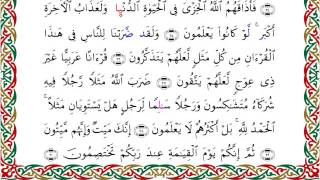 فَأَذَاقَهُمُ ٱللَّهُ ٱلْخِزْىَ فِى ٱلْحَيَوٰةِ ٱلدُّنْيَا وَلَعَذَابُ ٱلْأَخِرَةِ
أَكْبَرُ لَوْ كَانُوا۟ يَعْلَمُونَ وَلَقَد ضَّرَبْنَا لِلنَّاسِ فِى هَٰذَا
ٱلْقُرْءَانِ مِن كُلِّ مَثَلٍ لَّعَلَّهُمْ يَتَذَكَّرُونَ قُرْءَانًا عَرَبِيًّا غَيْرَ
ذِى عِوَجٍ لَّعَلَّهُمْ يَتَّقُونَ ضَرَبَ ٱللَّهُ مَثَلًا رَّجُلًا فِيهِ
شُرَكَآءُ مُتَشَٰكِسُونَ وَرَجُلًا سَٰلِمًا لِّرَجُلٍ هَلْ يَسْتَوِيَانِ مَثَلًا
ٱلْحَمْدُ لِلَّهِ بَلْ أَكْثَرُهُمْ لَا يَعْلَمُونَ إِنَّكَ مَيِّتٌ وَإِنَّهُم مَّيِّتُونَ
ثُمَّ إِنَّكُمْ يَوْمَ ٱلْقِيَٰمَةِ عِندَ رَبِّكُمْ تَخْتَصِمُونَ